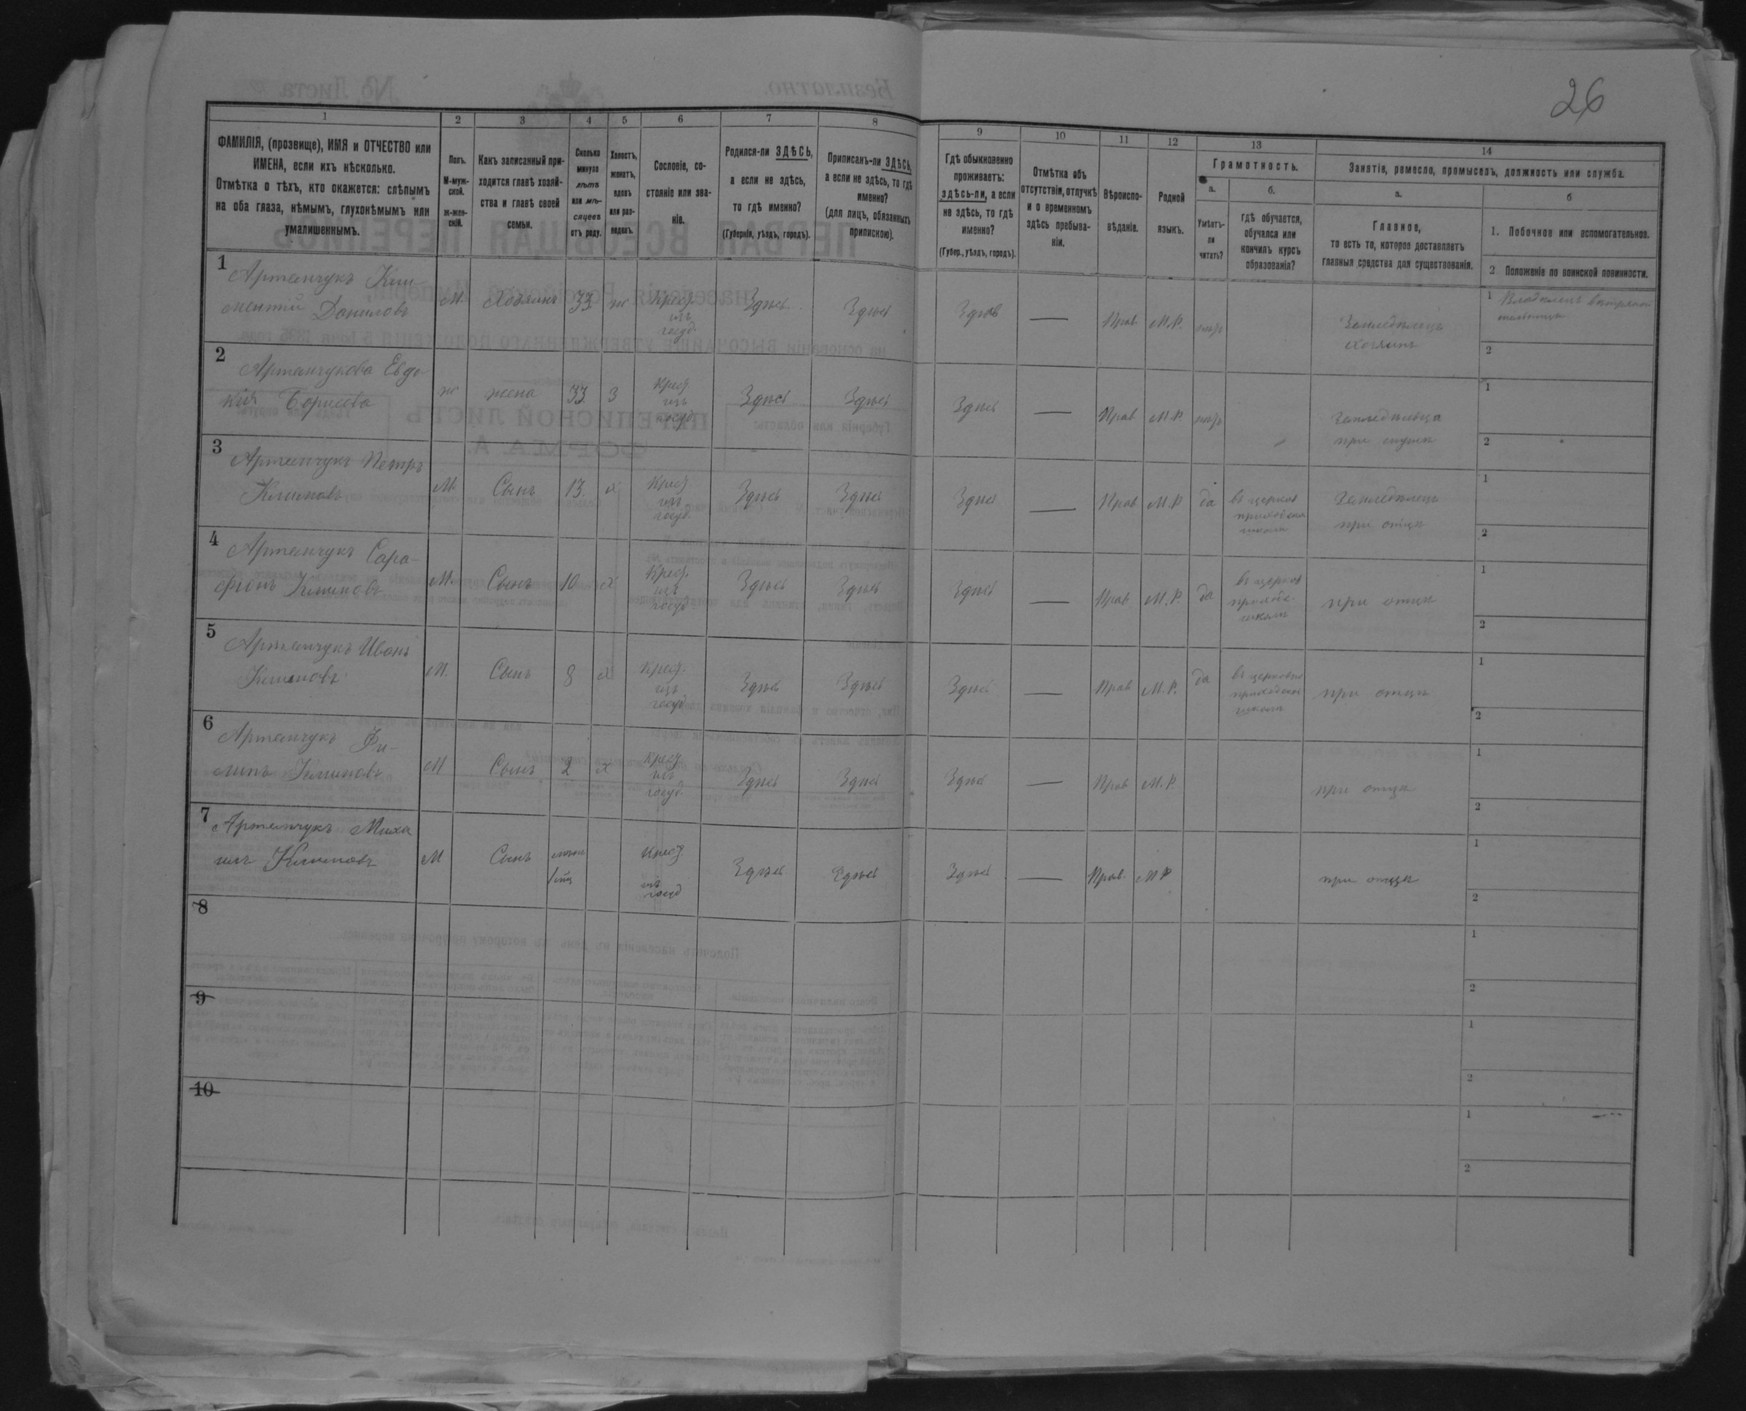 26
1 2 3 4 5 6 7 8 9 10 11 12 13 14
ФАМИЛІЯ, (прозвище), ИМЯ и ОТЧЕСТВО или
ИМЕНА, если ихъ нѣсколько.
Отмѣтка о тѣхъ, кто окажется: слѣпымъ
на оба глаза, нѣмымъ, глухонѣмымъ или
умалишеннымъ.
Полъ.
М-муж-
ской.
Ж-жен-
скій.
Какъ записанный при-
ходится главѣ хозяй-
ства и главѣ своей
семьи.
Сколько
минуло
лѣтъ
или мѣ-
сяцевъ
отъ роду.
Холостъ,
женатъ,
вдовъ
или раз-
веденъ.
Сословіе, со-
стояніе или зва-
ніе.
Родился-ли ЗДѢСЬ,
а если не здѣсь,
то гдѣ именно?
(Губернія, уѣздъ, городъ).
Приписанъ-ли ЗДѢСЬ,
а если не здѣсь, то гдѣ
именно?
(для лицъ, обязанныхъ
припискою).
Гдѣ обыкновенно
проживаетъ:
здѣсь-ли, а если
не здѣсь, то гдѣ
именно?
(Губер., уѣздъ, городъ).
Отмѣтка объ
отсутствіи, отлучкѣ
и о временномъ
здѣсь пребыва-
ніи.
Вѣроиспо-
вѣданіе.
Родной
языкъ.
Грамотность.
а.
Умѣетъ-
ли
читать?
б.
гдѣ обучается,
обучался или
кончилъ курсъ
образованія?
Занятіе, ремесло, промыселъ, должность или служба.
а.
Главное,
то есть то, которое доставляетъ
главныя средства для существованія.
б
1. Побочное или вспомогательное.
2 Положеніе по воинской повинности.
1 Артемчукъ Кли
ментій Даниловъ М. Хозяинъ 33 ж Крест. изъ госуд. Здѣсь Здѣсь Здѣсь — Прав М.Р. Земледѣлецъ хозяинъ
1
2
2 Артемчукова Евдо-
кія ж жена 33 З Крест изъ госуд Здѣсь Здѣсь Здѣсь — Прав М.Р. при мужѣ
1
2
3 Артемчукъ Петръ
Климовъ М. Сынъ 13 х Крест изъ госуд. Здѣсь Здѣсь Здѣсь — Прав М.Р да въ церков приходск школѣ Земледѣлецъ при отцѣ
1
2
4 Артемчукъ Сара-
фонъ Климовъ М. Сынъ 10 х Крест. изъ госуд Здѣсь Здѣсь Здѣсь — Прав М.Р. да въ церков приходс школѣ при отцѣ
1
2
5 Артемчукъ Иванъ
Климовъ М. Сынъ 8 х Крест. изъ госуд Здѣсь Здѣсь Здѣсь — Прав М.Р. да въ церковн приходск школѣ при отцѣ
1
2
6 Артемчукъ Фи-
липъ Климовъ М Сынъ 2 х Крест изъ госуд. Здѣсь Здѣсь Здѣсь — Прав М.Р. при отцѣ
1
2
7 Артемчукъ Миха
илъ Климовъ М Сынъ Крест. изъ госуд Здѣсь Здѣсь Здѣсь — Прав. М Р при отцѣ
1
2
8
1
2
9
1
2
10
1
2